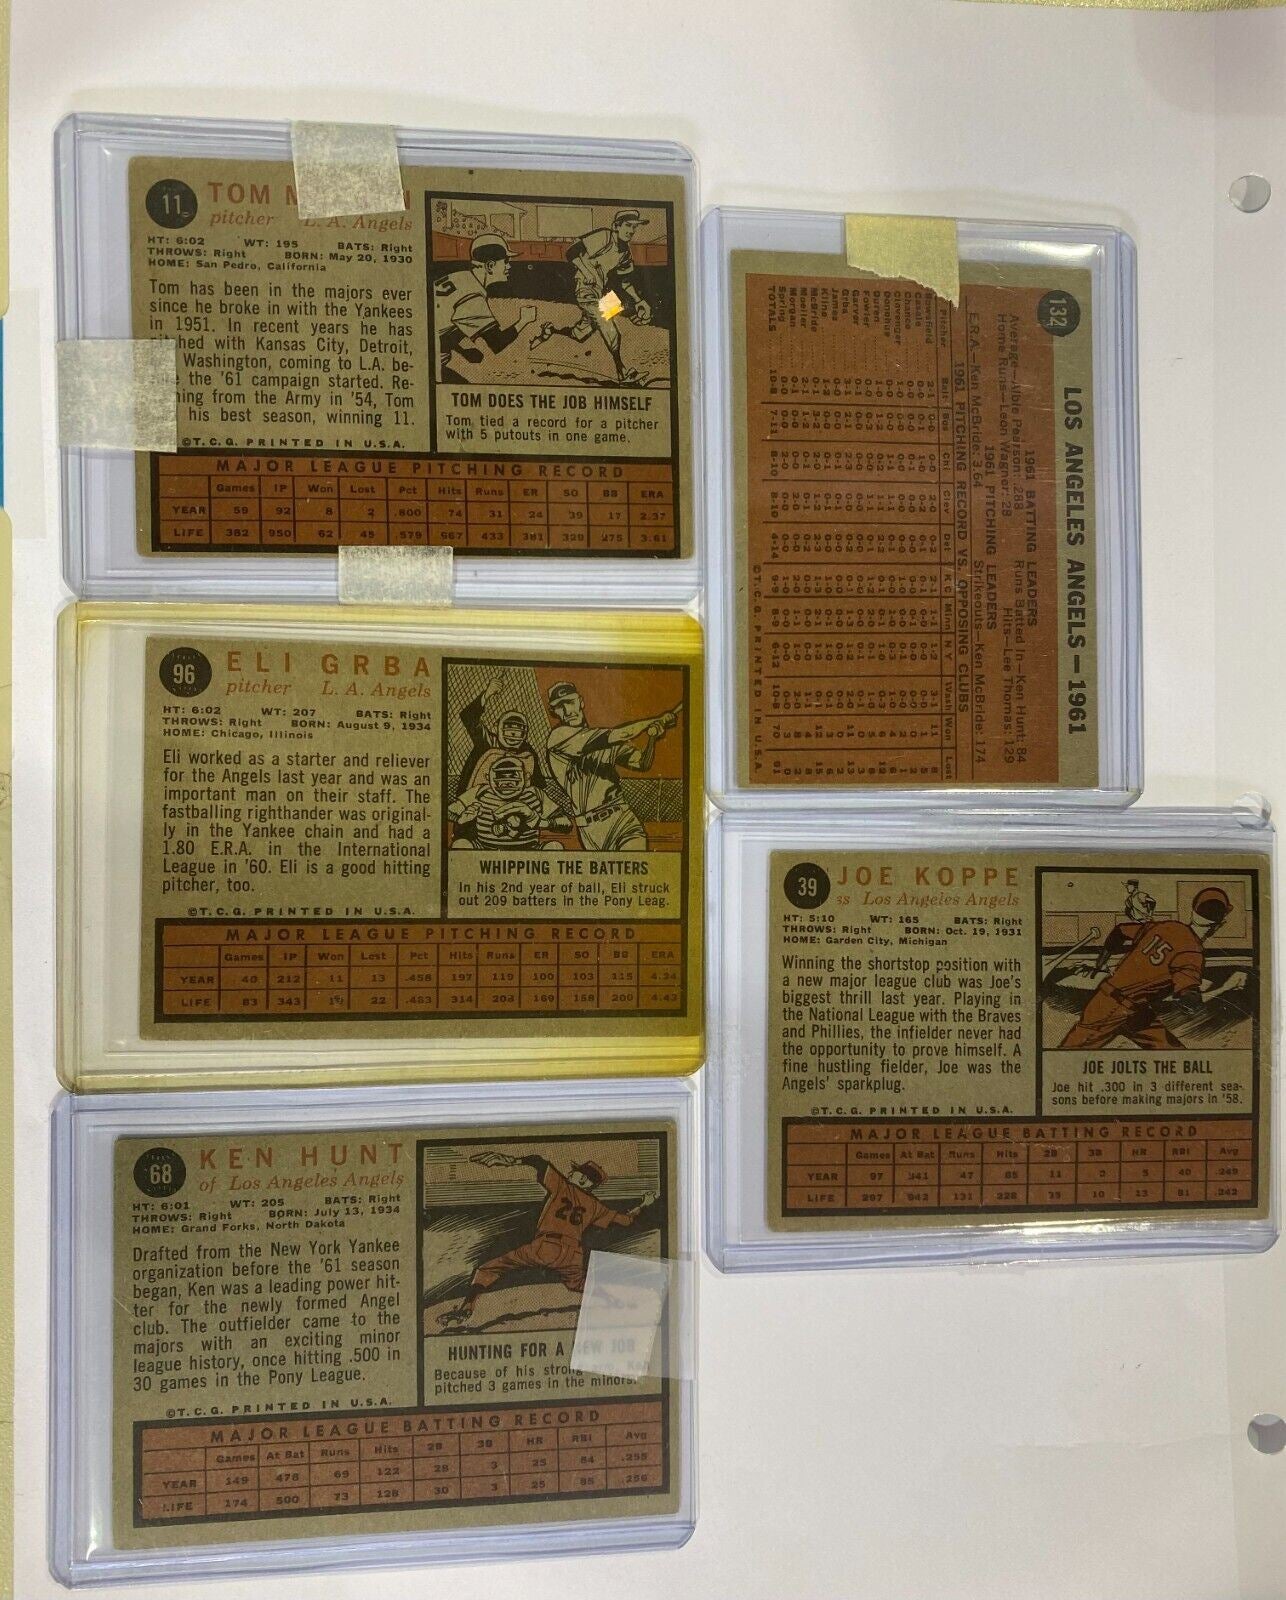 11
TOM M N
pitcher L. A. Angels
HT: 6:02 WT: 195 BATS: Right
THROWS: Right BORN: May 20, 1930
HOME: San Pedro, California
Tom has been in the majors ever
since he broke in with the Yankees
in 1951. In recent years he has
hed with Kansas City, Detroit,
Washington, coming to L.A. be-
the '61 campaign started. Re-
ning from the Army in '54, Tom
his best season, winning 11.
©T.C.G. PRINTED IN U.S.A.
TOM DOES THE JOB HIMSELF
Tom tied a record for a pitcher
with 5 putouts in one game.
MAJOR LEAGUE PITCHING RECORD
Games IP Won Lost Pct Hits Runs ER SO BB ERA
YEAR 59 92 8 2 .800 74 31 24 39 17 2.37
LIFE 382 950 62 45 .579 867 433 381 329 275 3.61
96
ELI GRBA
pitcher L. A. Angels
HT: 6:02 WT: 207 BATS: Right
THROWS: Right BORN: August 9, 1934
HOME: Chicago, Illinois
Eli worked as a starter and reliever
for the Angels last year and was an
important man on their staff. The
fastballing righthander was original-
ly in the Yankee chain and had a
1.80 E.R.A. in the International
League in '60. Eli is a good hitting
pitcher, too.
©T.C.G. PRINTED IN U.S.A.
WHIPPING THE BATTERS
In his 2nd year of ball, Eli struck
out 209 batters in the Pony Leag.
MAJOR LEAGUE PITCHING RECORD
Games IP Won Lost Pct Hits Runs ER SO BB ERA
YEAR 40 212 11 13 .458 197 119 100 103 115 4.24
LIFE 83 343 19 22 .463 314 203 169 158 200 4.43
68
KEN HUNT
of Los Angeles Angels
HT: 6:01 WT: 205 BATS: Right
THROWS: Right BORN: July 13, 1934
HOME: Grand Forks, North Dakota
Drafted from the New York Yankee
organization before the '61 season
began, Ken was a leading power hit-
ter for the newly formed Angel
club. The outfielder came to the
majors with an exciting minor
league history, once hitting .500 in
30 games in the Pony League.
©T.C.G. PRINTED IN U.S.A.
26
HUNTING FOR A NEW JOB
Because of his strong arm, Ken
pitched 3 games in the minors.
MAJOR LEAGUE BATTING RECORD
Games At Bat Runs Hits 2B 3B HR RBI Avg
YEAR 149 478 69 122 28 3 25 84 .255
LIFE 174 500 73 128 30 3 25 85 .256
132
LOS ANGELES ANGELS—1961
1961 BATTING LEADERS
Average—Albie Pearson: .288 Runs Batted In—Ken Hunt: 84
Home Runs—Leon Wagner: 28 Hits—Lee Thomas: 129
1961 PITCHING LEADERS
E.R.A.—Ken McBride: 3.64 Strikeouts—Ken McBride: 174
1961 PITCHING RECORD VS. OPPOSING CLUBS
Pitcher Balt Bos Chi Clev Det K C Minn N Y Wash Won Lost
Bowsfield
Casale
Chance
Clevenger
Donohue
Duren
Fowler
Garver
Grba
James
Kline
McBride
Moeller
Morgan
Spring
TOTALS 10-8 7-11 8-10 8-10 4-14 9-9 8-9 6-12 10-8 70 91
©T.C.G. PRINTED IN U.S.A.
39
JOE KOPPE
ss Los Angeles Angels
HT: 5:10 WT: 165 BATS: Right
THROWS: Right BORN: Oct. 19, 1931
HOME: Garden City, Michigan
Winning the shortstop position with
a new major league club was Joe's
biggest thrill last year. Playing in
the National League with the Braves
and Phillies, the infielder never had
the opportunity to prove himself. A
fine hustling fielder, Joe was the
Angels' sparkplug.
©T.C.G. PRINTED IN U.S.A.
15
JOE JOLTS THE BALL
Joe hit .300 in 3 different sea-
sons before making majors in '58.
MAJOR LEAGUE BATTING RECORD
Games At Bat Runs Hits 2B 3B HR RBI Avg
YEAR 97 341 47 85 11 2 5 40 .249
LIFE 297 942 131 228 35 10 13 81 .242